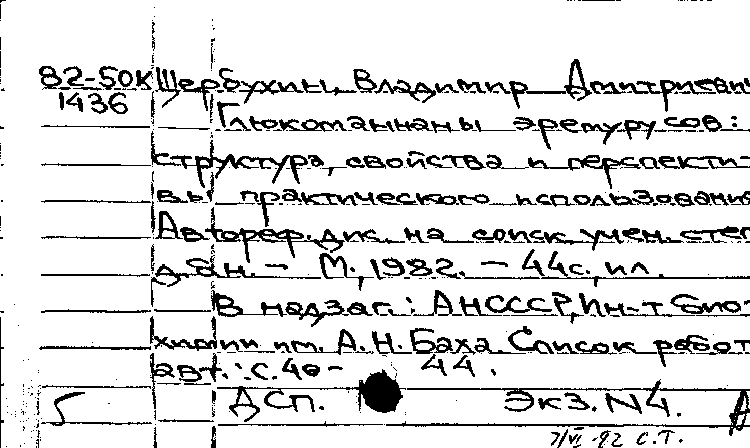 82-50К Щербухин, Владимир Дмитриевич
1436
Глюкоманнаны эремурусов:
структура, свойства и перспекти-
вы практического использования
Автореф. дис. на соиск. учен. степ
д.б.н. - М., 1982. - 44с., ил.
В надзаг.: АН СССР, Ин-т био-
химии им. А.Н. Баха. Список работ
авт.: с. 40-44.
5 ДСП. Экз. N4.
С.Т.